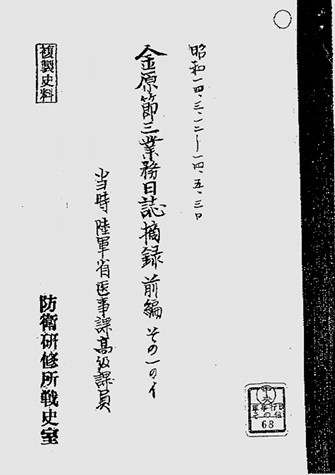 昭和一四、三、一二〜一四、五、三〇
金原節三業務日誌摘録 前編 その一のイ
当時 陸軍省医事課高級課員
防衛研修所戦史室
複製史料
中央
68